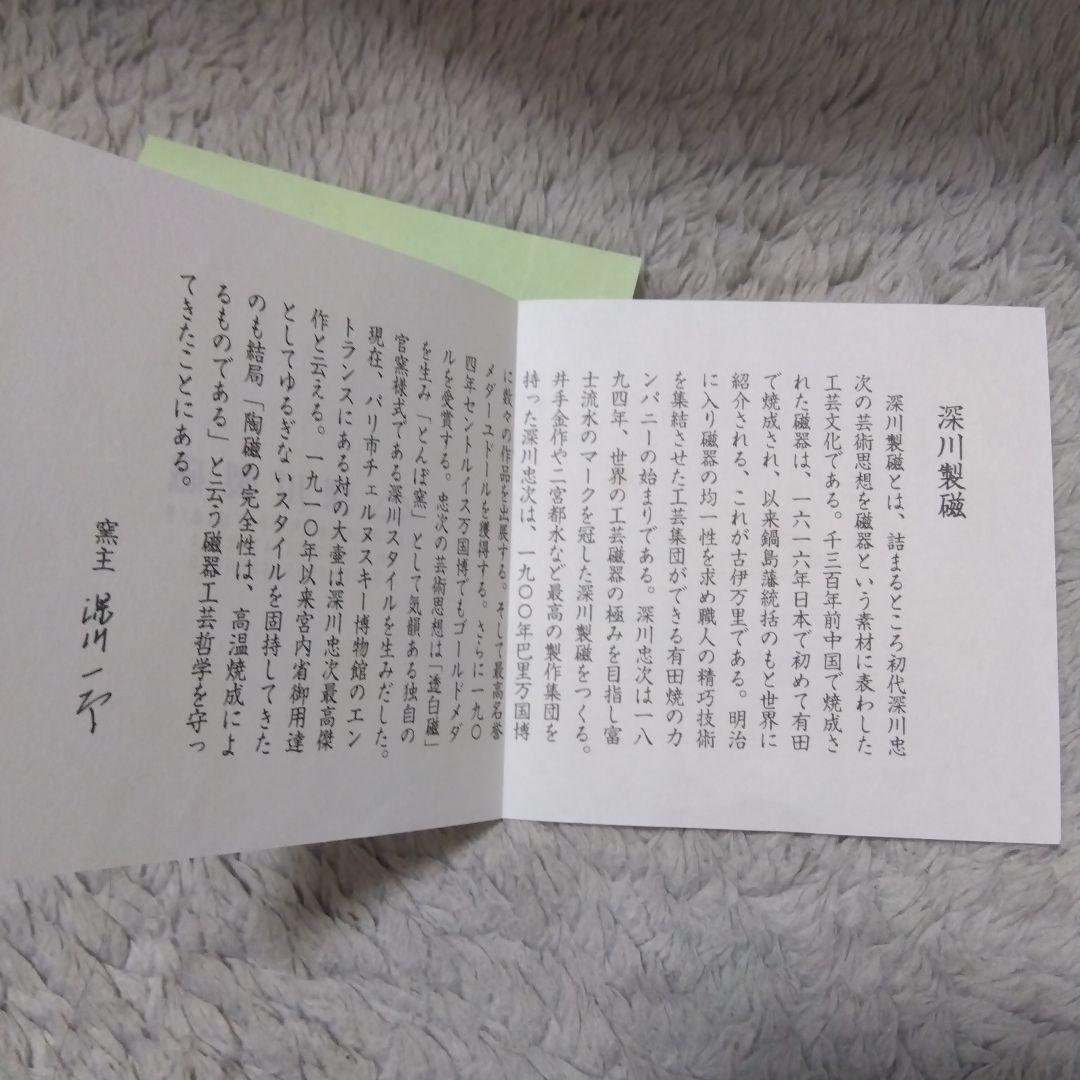 深川製磁
深川製磁とは、詰まるところ初代深川忠
次の芸術思想を磁器という素材に表わした
工芸文化である。千三百年前中国で焼成さ
れた磁器は、一六一六年日本で初めて有田
で焼成され、以来鍋島藩統括のもと世界に
紹介される、これが古伊万里である。明治
に入り磁器の均一性を求め職人の精巧技術
を集結させた工芸集団ができる有田焼の力
ンパニーの始まりである。深川忠次は一八
九四年、世界の工芸磁器の極みを目指し富
士流水のマークを冠した深川製磁をつくる。
井手金作や二宮都水など最高の製作集団を
持った深川忠次は、一九〇〇年巴里万国博
に数々の作品を出展する。そして最高名誉
メダーユドールを獲得する。さらに一九〇
四年セントルイス万国博でもゴールドメダ
ルを受賞する。忠次の芸術思想は「透白磁」
を生み「とんぼ窯」として気韻ある独自の
官窯様式である深川スタイルを生みだした。
現在、パリ市チェルヌスキー博物館のエン
トランスにある対の大壷は深川忠次最高傑
作と云える。一九一〇年以来宮内省御用達
としてゆるぎないスタイルを固持してきた
のも結局「陶磁の完全性は、高温焼成によ
るものである」と云う磁器工芸哲学を守っ
てきたことにある。
窯主 深川一